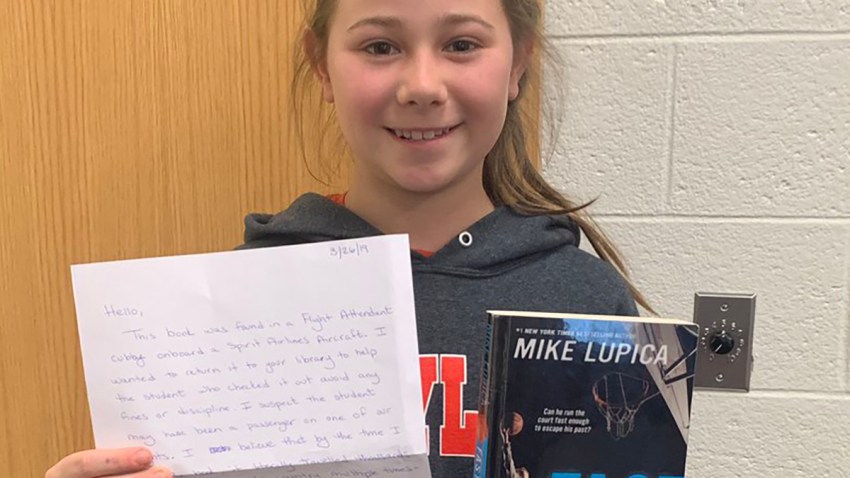 3/26/19
Hello,
This book was found in a Flight Attendant
cubby onboard a Spirit Airlines Aircraft. I
wanted to return it to your library to help
the student who checked it out avoid any
fines or discipline. I suspect the student
may have been a passenger on one of our
I believe that by the time I
travelled thousands
country multiple times
YL
#1 NEW YORK TIMES BESTSELLING AUTHOR
MIKE LUPICA
Can he run the
court fast enough
to escape his past?
FAST